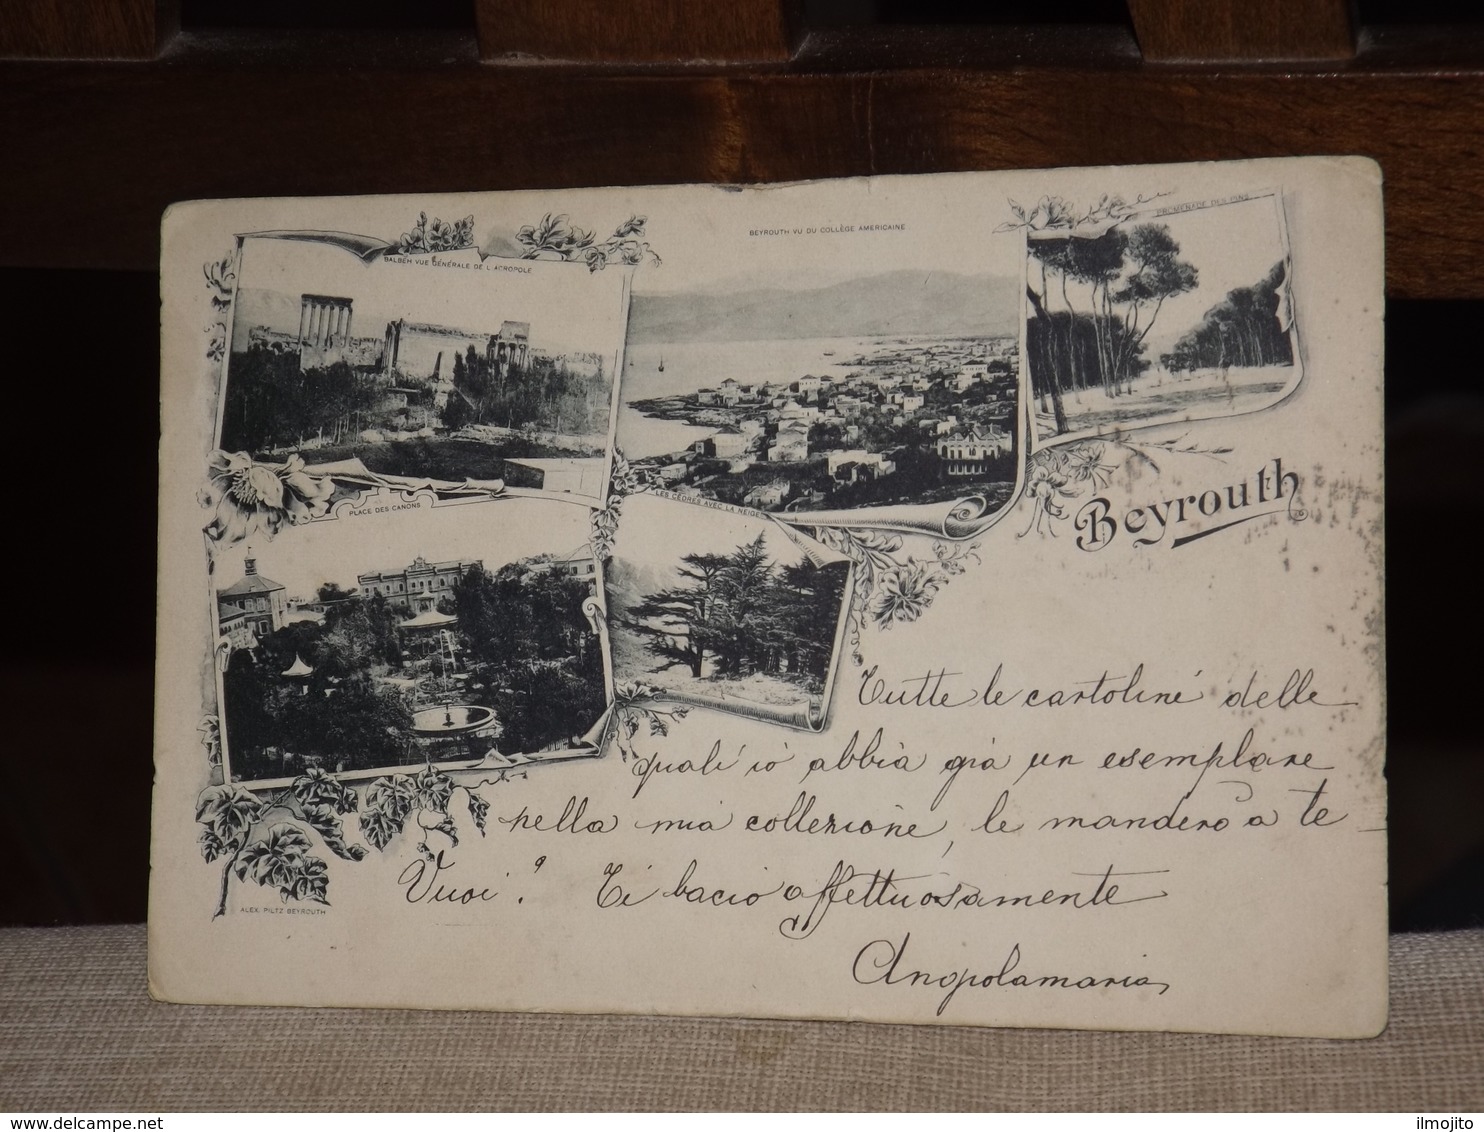 BALBEH VUE GÉNÉRALE DE L'ACROPOLE
BEYROUTH VU DU COLLÈGE AMERICAINE
PROMENADE DES PINS
PLACE DES CANONS
LES CÈDRES AVEC LA NEIGE
Beyrouth
Tutte le cartoline delle
quali io abbia già un esemplare
nella mia collezione, le manderò a te
Vuoi? Ti bacio affettuosamente
ALEX. PILTZ BEYROUTH
delcampe.net
ilmojito